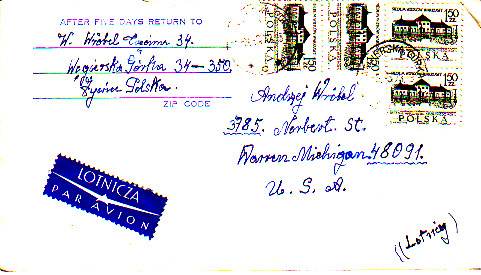 AFTER FIVE DAYS RETURN TO
W. Wróbel 34.
Węgierska Górka 34-350
Żywiec Polska.
ZIP CODE
150
POLSKA
150
POLSKA
150 ZŁ
POLSKA
150 ZŁ
POLSKA
Andrzej Wróbel
3785. Norbert St.
Warren Michigan 48091.
U. S. A.
LOTNICZA
PAR AVION
(Lotniczy)